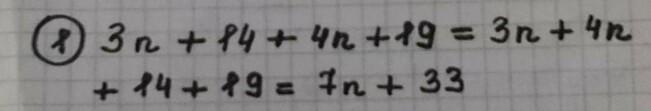 ① 3n + 14 + 4n + 19 = 3n + 4n
+ 14 + 19 = 7n + 33